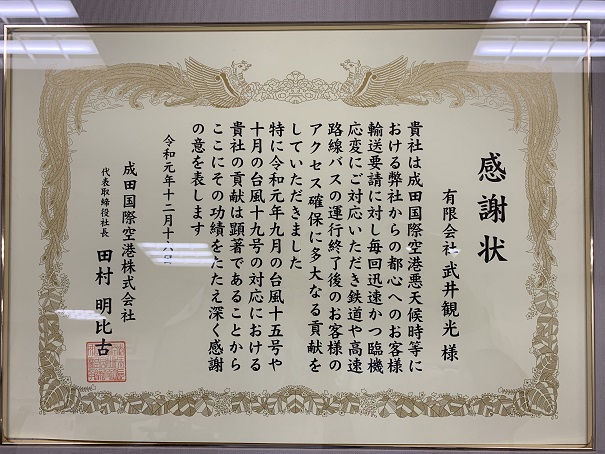 感謝状
有限会社 武井観光 様
貴社は成田国際空港悪天候時等に
おける弊社からの都心へのお客様
輸送要請に対し毎回迅速かつ臨機
応変にご対応いただき鉄道や高速
路線バスの運行終了後のお客様の
アクセス確保に多大なる貢献を
していただきました
特に令和元年九月の台風十五号や
十月の台風十九号の対応における
貴社の貢献は顕著であることから
ここにその功績をたたえ深く感謝
の意を表します
令和元年十二月十八日
成田国際空港株式会社
代表取締役社長 田村 明比古